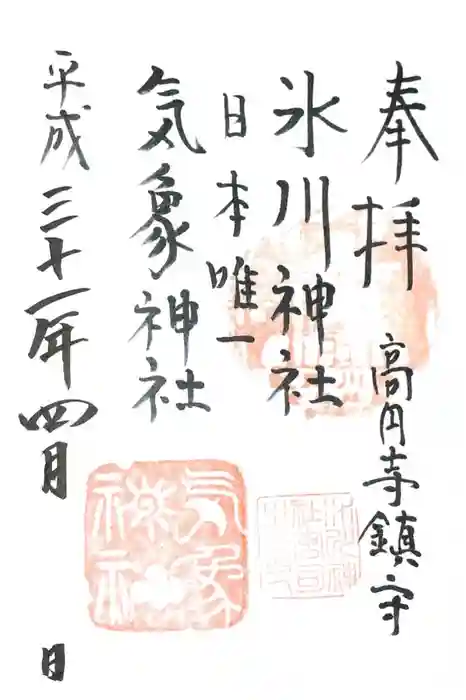 奉拝
高円寺鎮守
氷川神社
日本唯一
気象神社
平成三十一年四月
日
気象神社